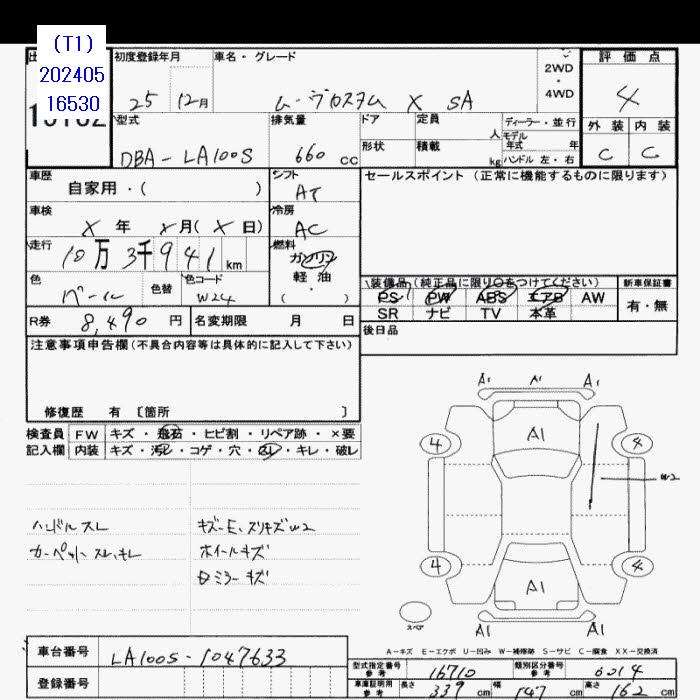 (T1)
202405
16530
初度登録年月
車名・グレード
2WD
・
4WD
評価点
25 12月
ムーヴカスタム X SA
4
型式
排気量
ドア
定員
人
ディーラー・並行
モデル
年式 年
外装 内装
DBA-LA100S
660 cc
形状
積載
kg
ハンドル 左・右
C C
車歴
自家用・( )
シフト
AT
セールスポイント (正常に機能するものに限ります)
車検
X 年 X 月( X 日)
冷房
AC
走行
10万3千941 km
燃料
ガソリン
軽油
( )
色
パール
色替
色コード
W24
装備品(純正品に限り○をつけてください)
新車保証書
PS PW ABS エアB AW
有・無
R券 8,490 円
名変期限 月 日
SR ナビ TV 本革
後日品
注意事項申告欄(不具合内容等は具体的に記入して下さい)
修復歴 有 [箇所 ]
検査員 FW キズ・飛石・ヒビ割・リペア跡・×要
記入欄 内装 キズ・汚レ・コゲ・穴・スレ・キレ・破レ
A1 A1 A1
A1
4 4
W2
4 4
A1
A1 A1
スペア
ハンドルスレ
カーペットスレ、キレ
キズーE、スリキズW2
ホイールキズ
ミラーキズ
A-キズ E-エクボ U-凹み W-補修跡 S-サビ C-腐食 XX-交換済
車台番号 LA100S-1047633
登録番号
型式指定番号
参考
16710
類別区分番号
参考
0014
車庫証明用
参考
長さ 339 cm 幅 147 cm 高さ 162 cm